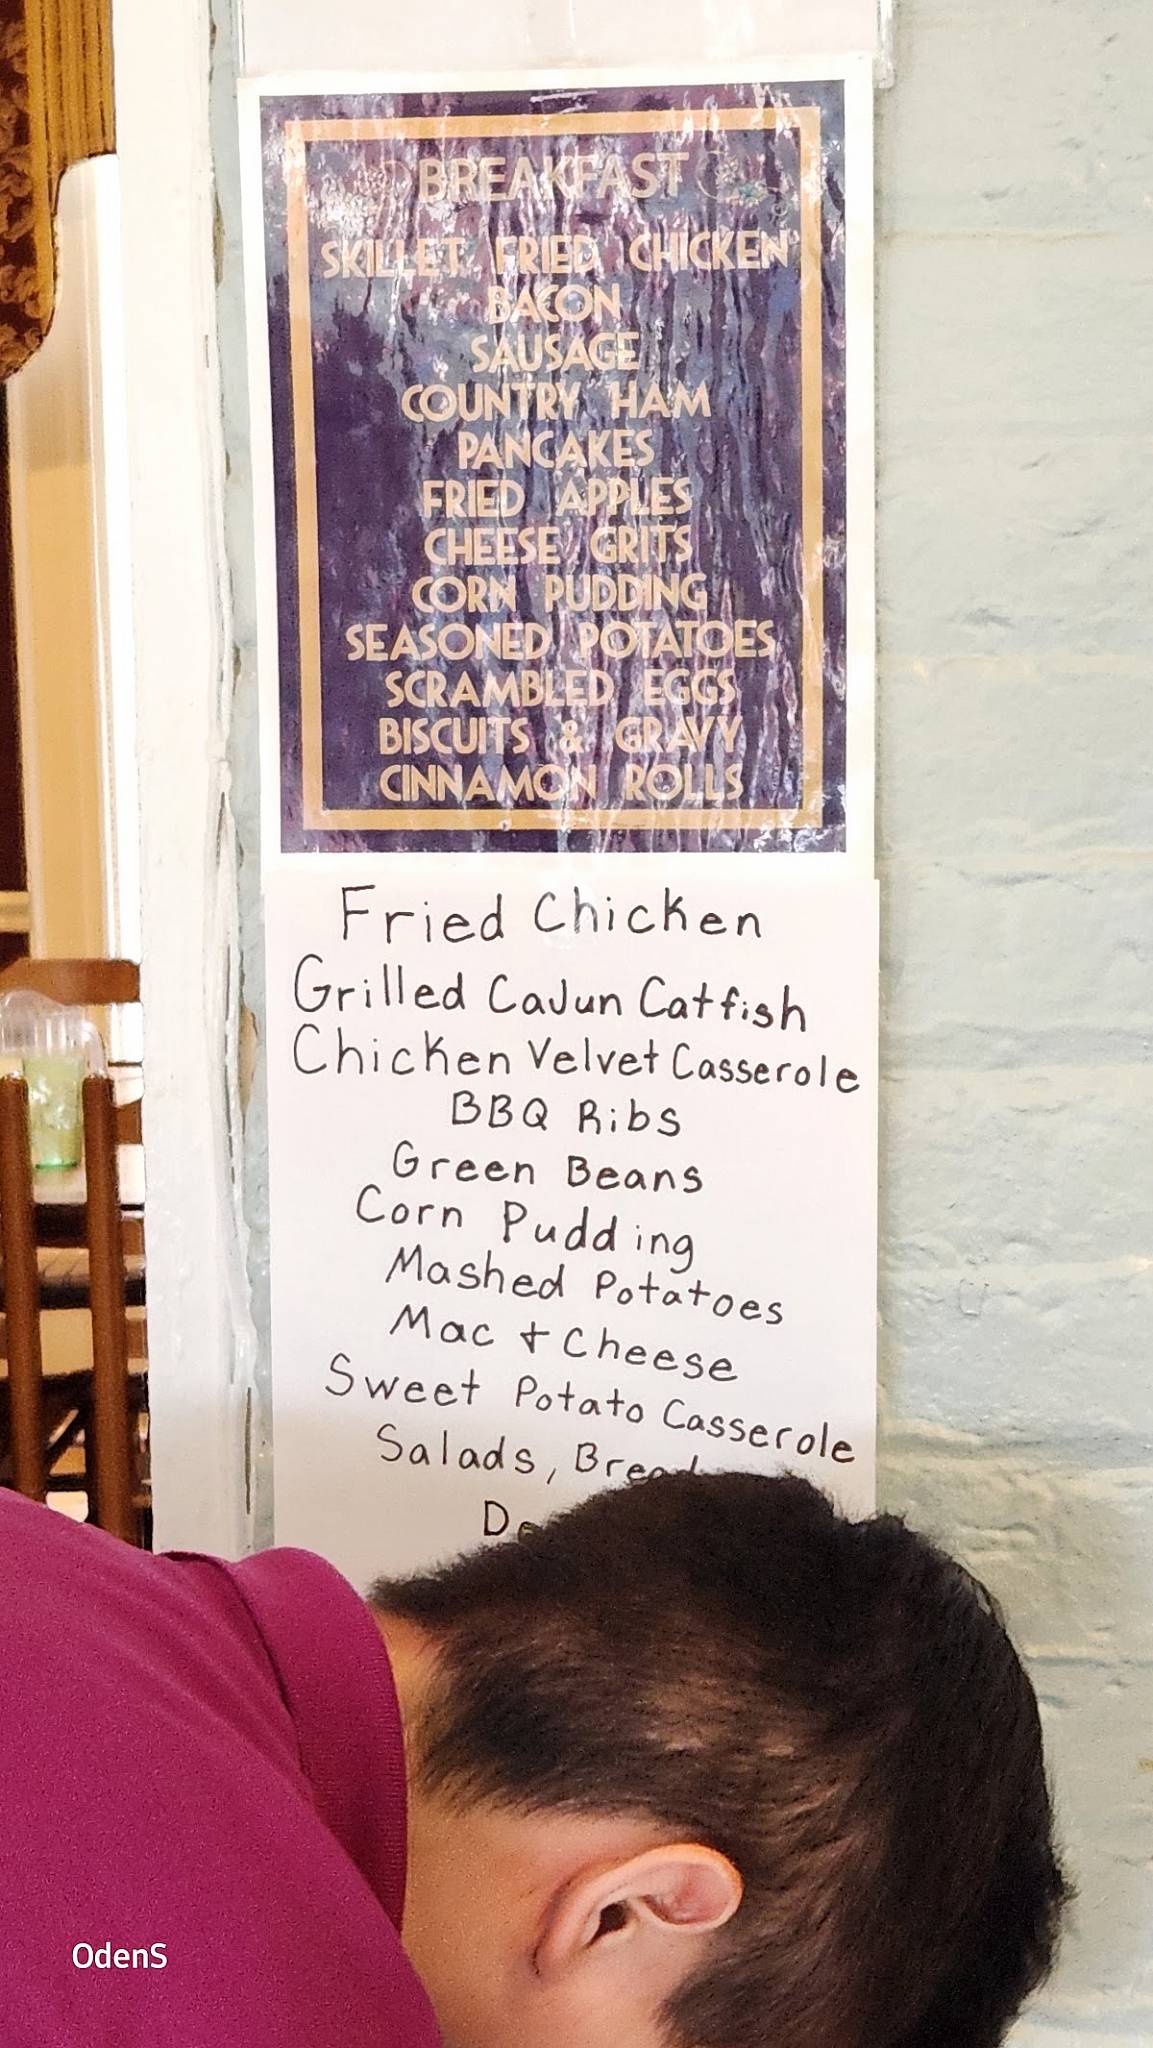 BREAKFAST
SKILLET FRIED CHICKEN
BACON
SAUSAGE
COUNTRY HAM
PANCAKES
FRIED APPLES
CHEESE GRITS
CORN PUDDING
SEASONED POTATOES
SCRAMBLED EGGS
BISCUITS & GRAVY
CINNAMON ROLLS
Fried Chicken
Grilled Cajun Catfish
Chicken Velvet Casserole
BBQ Ribs
Green Beans
Corn Pudding
Mashed Potatoes
Mac + Cheese
Sweet Potato Casserole
Salads,
OdenS